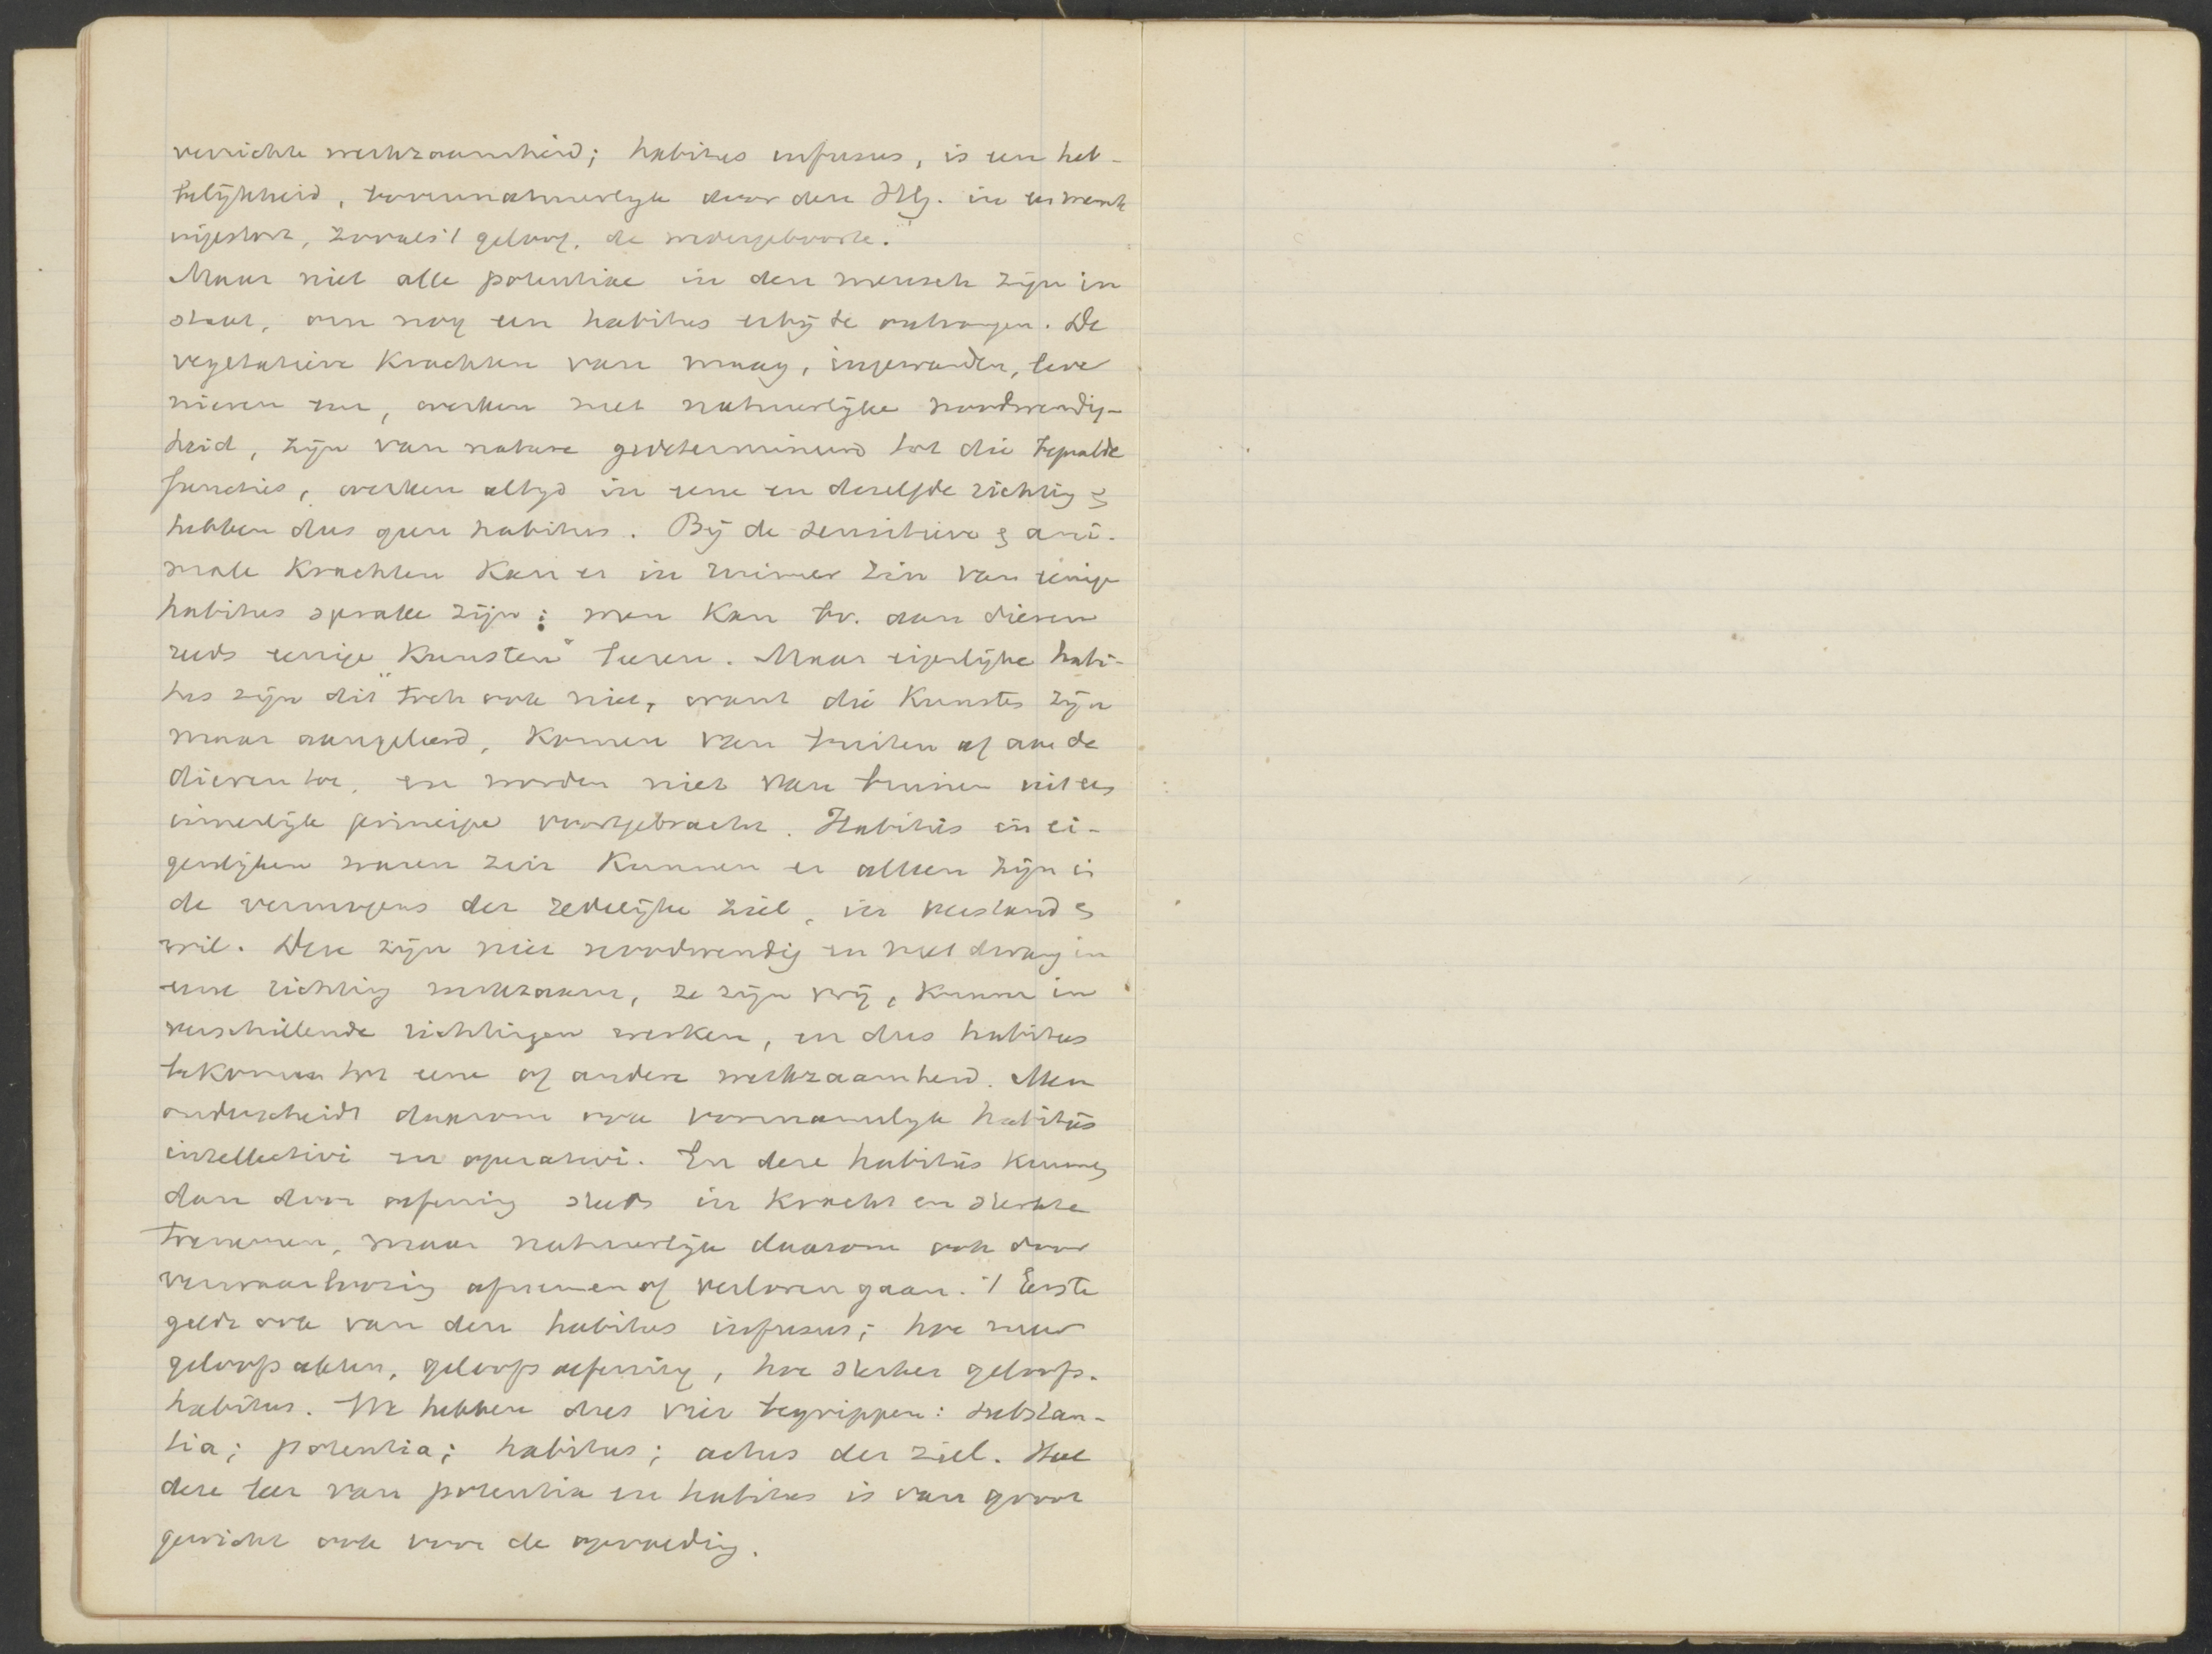 verrichte werkzaamheid; habitus infusus, is een heb-
belijkheid, bovennatuurlijk door den HG. in de mensch
ingestort, zooals 't geloof, de wedergeboorte.
Maar niet alle potentiae in den mensch zijn in
staat, om nog een habitus erbij te ontvangen. De
vegetatieve krachten van maag, ingewanden, lever
nieren enz, werken met natuurlijke noodwendig-
heid, zijn van nature gedetermineerd tot die bepaalde
functies, werken altijd in eene en dezelfde richting &
hebben dus geen habitus. Bij de sensitieve & ani-
male krachten kan er in ruimer zin van eenige
habitus sprake zijn: men kan bv. aan dieren
reeds eenige "kunsten" leeren. Maar eigenlijke habi-
tus zijn dit toch ook niet, want die kunsten zijn
maar aangeleerd, komen van buiten af aan de
dieren toe, en worden niet van binnen uit een
innerlijk principe voortgebracht. Habitus in ei-
genlijken waren zin kunnen er alleen zijn in
de vermogens der redelijke ziel, in verstand &
wil. Deze zijn niet noodwendig en met dwang in
eene richting werkzaam, ze zijn vrij, kunnen in
verschillende richtingen werken, en dus habitus
bekomen tot eene of andere werkzaamheid. Men
onderscheidt daarom ook voornamelijk habitus
intellectivi en operativi. En deze habitus kunnen
dan door oefening steeds in kracht en sterkte
toenemen, maar natuurlijk daarom ook door
verwaarloozing afnemen of verloren gaan. 't Eerste
geldt ook van den habitus infusus; hoe meer
geloofsakten, geloofsoefening, hoe sterker geloofs-
habitus. We hebben dus vier begrippen: substan-
tia; potentia; habitus; actus der ziel. Heel
deze leer van potentia en habitus is van groot
gewicht ook voor de opvoeding.